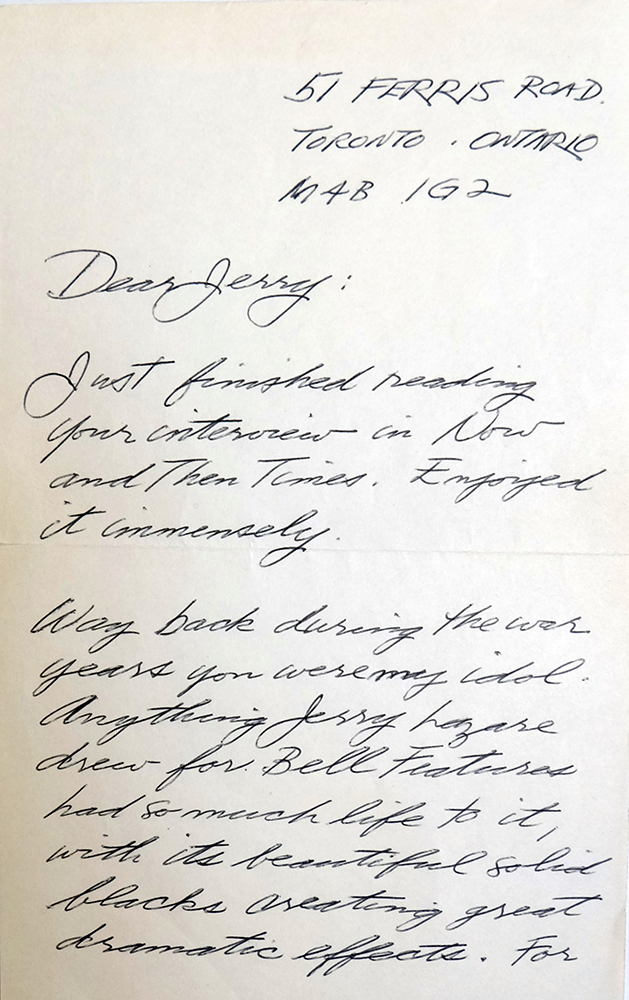 51 FERRIS ROAD.
TORONTO . ONTARIO
M4B 1G2
Dear Jerry :
Just finished reading
your interview in Now
and Then Times. Enjoyed
it immensely.
Way back during the war
years you were my idol.
Anything Jerry Lazare
drew for Bell Features
had so much life to it,
with its beautiful solid
blacks creating great
dramatic effects. For